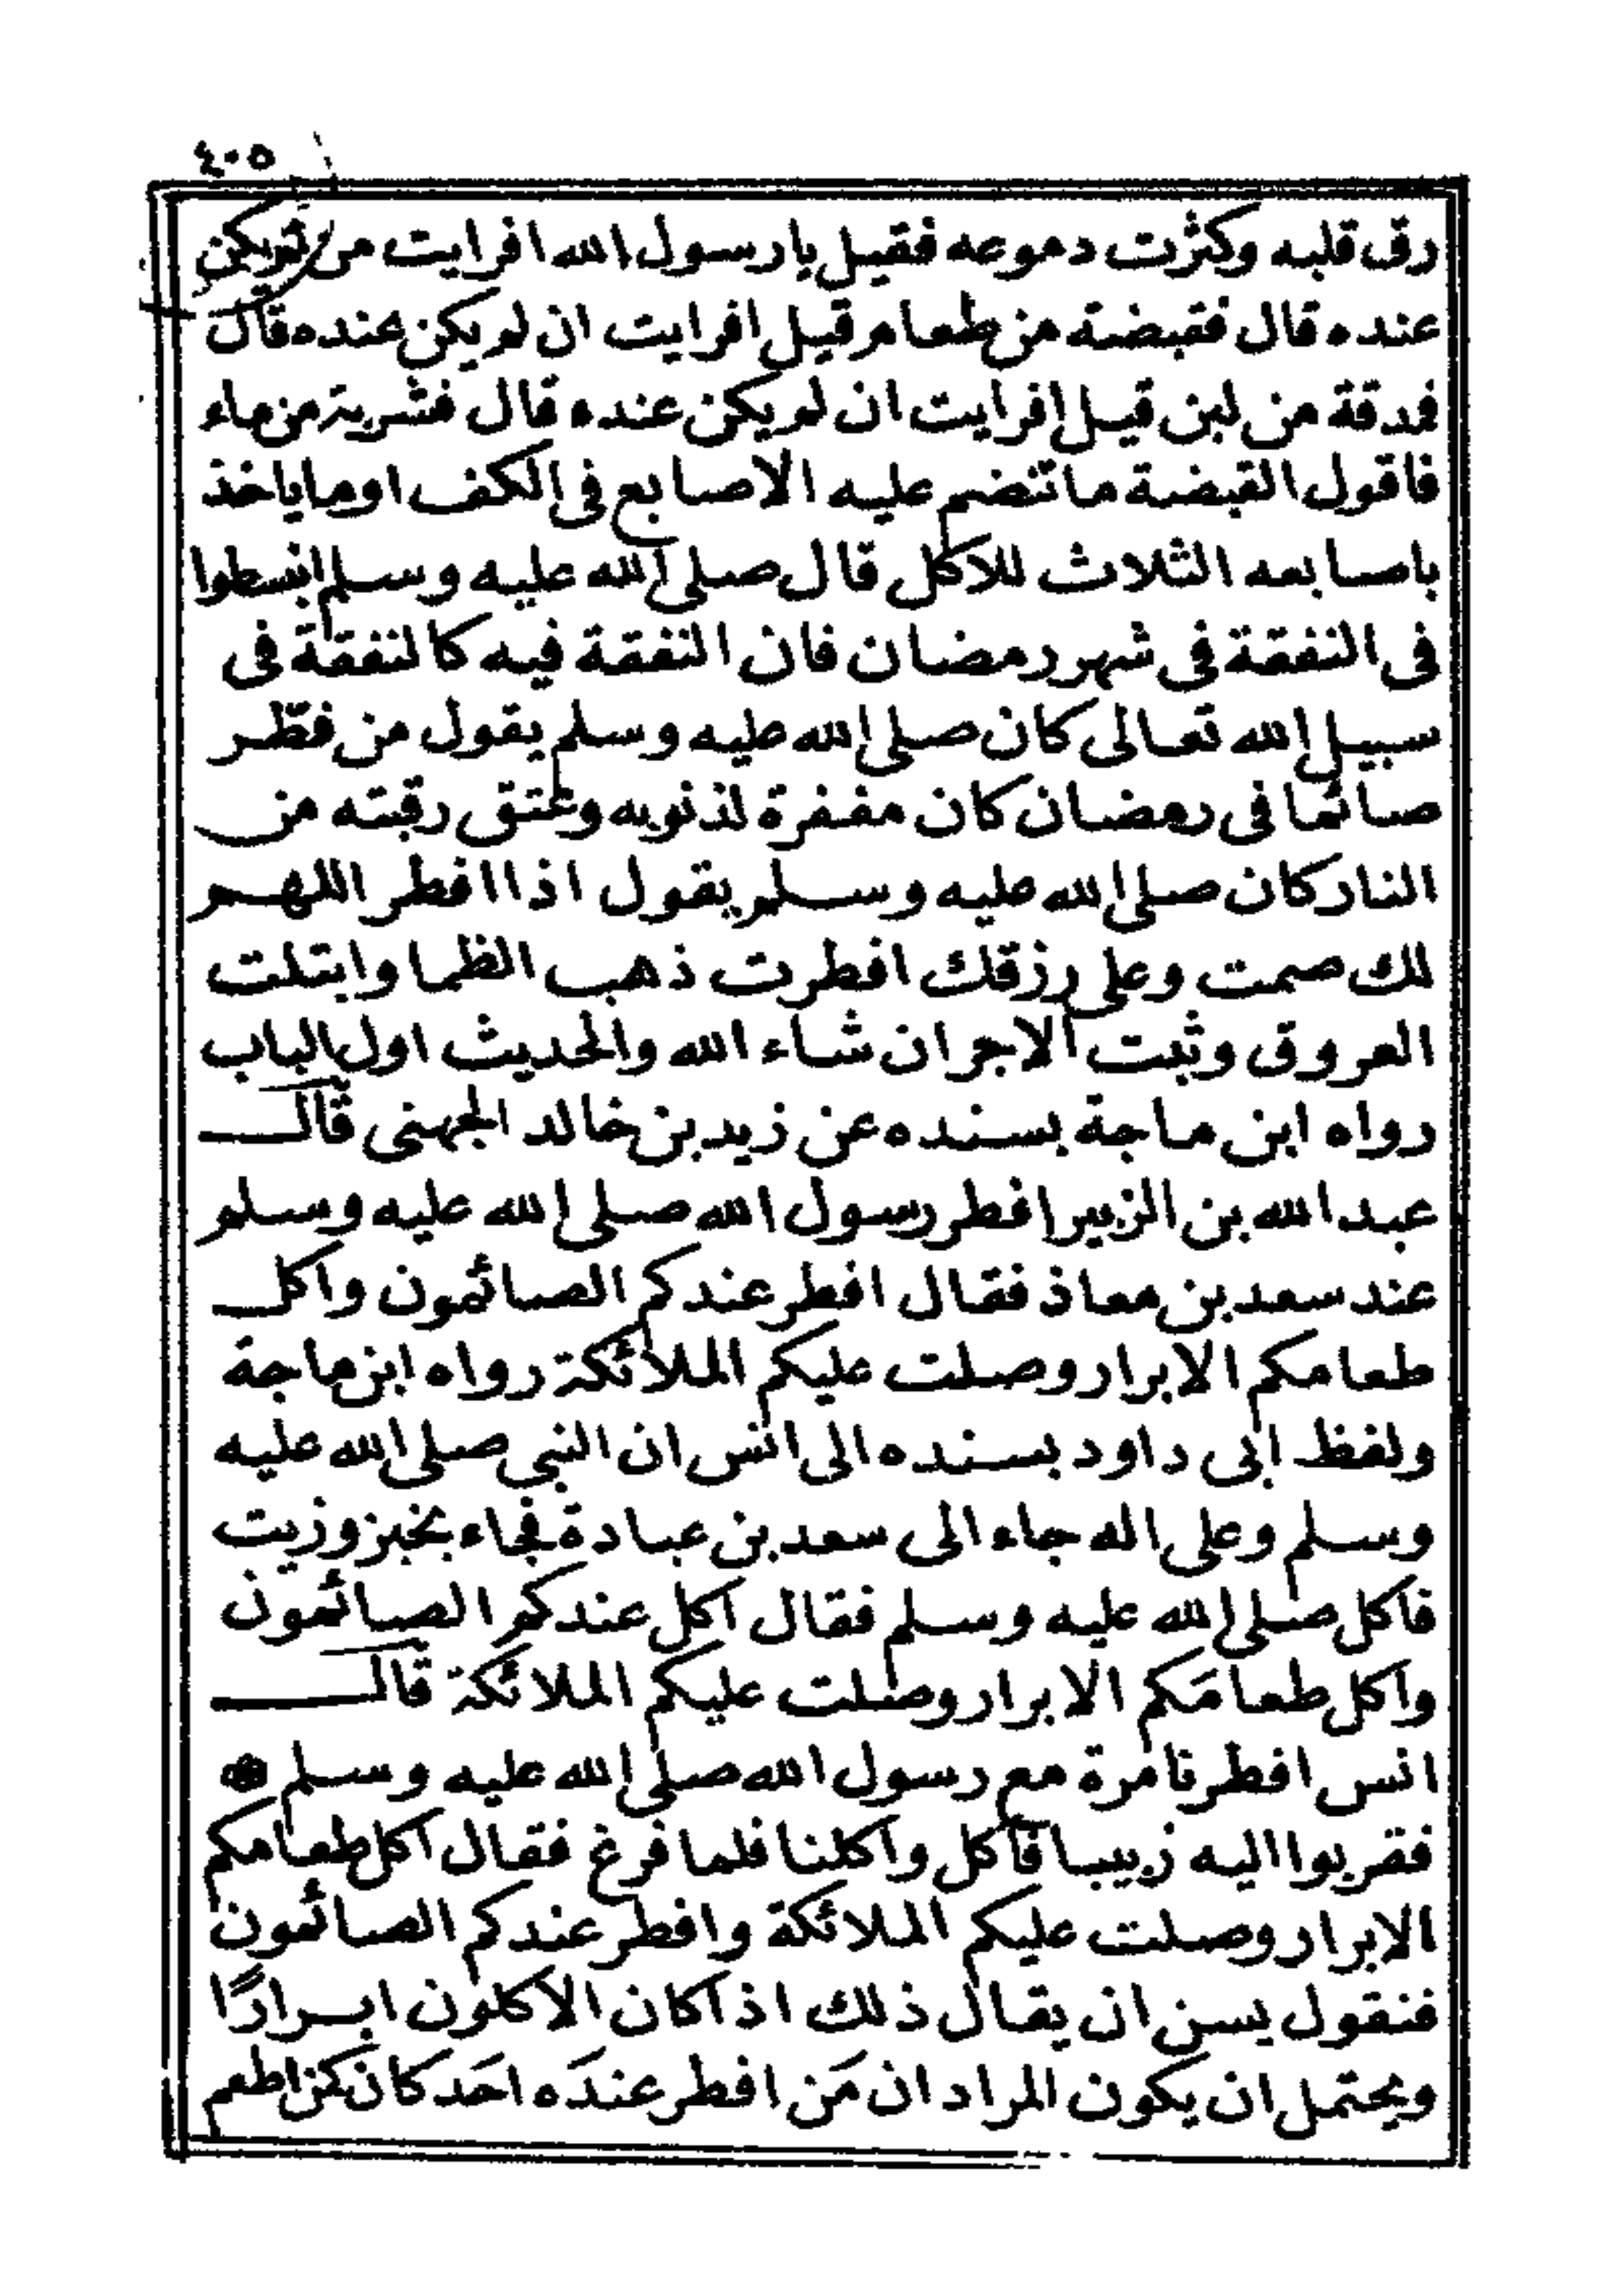 ٤٠٥
رق قلبه وكثرت دموعه فقيل يارسول الله افرايت من لم يكن
عنده قال فقبضة من طعام قيل افرايت ان لم يكن عنده قال
فمدقة من لبن قيل افرايت ان لم يكن عنده قال فشربة من ماء
فاقول القبضة ما تنضم عليه الاصابع فى الكف اوما ياخذ
باصابعه الثلاث للاكل قال صلى الله عليه وسلم انبسطوا
فى النفقة فى شهر رمضان فان النفقة فيه كالنفقة فى
سبيل الله تعالى كان صلى الله عليه وسلم يقول من فطّر
صائما فى رمضان كان مغفرة لذنوبه وعتق رقبته من
النار كان صلى الله عليه وسلم يقول اذا افطر اللهم
لك صمت وعلى رزقك افطرت ذهب الظما وابتلت
العروق وثبت الاجر ان شاء الله والحديث اول الباب
رواه ابن ماجة بسنده عن زيد بن خالد الجهنى قال
عبد الله بن الزبير افطر رسول الله صلى الله عليه وسلم
عند سعد بن معاذ فقال افطر عندكم الصائمون واكل
طعامكم الابرار وصلت عليكم الملائكة رواه ابن ماجة
ولفظ ابى داود بسنده الى انس ان النبي صلى الله عليه
وسلم وعلى اله جاء الى سعد بن عبادة فجاء بخبز وزيت
فاكل صلى الله عليه وسلم فقال اكل عندكم الصائمون
واكل طعامَكم الابرار وصلت عليكم الملائكة قال
انس افطرنا مرة مع رسول الله صلى الله عليه وسلم
فقربوا اليه زبيبا فاكل واكلنا فلما فرغ فقال اكل طعامكم
الابرار وصلت عليكم الملائكة وافطر عندكم الصائمون
فنقول يسن ان يقال ذلك اذا كان الاكلون ابرارًا
ويحتمل ان يكون المراد ان مَن افطر عندَه احَد كان كمن اطعم